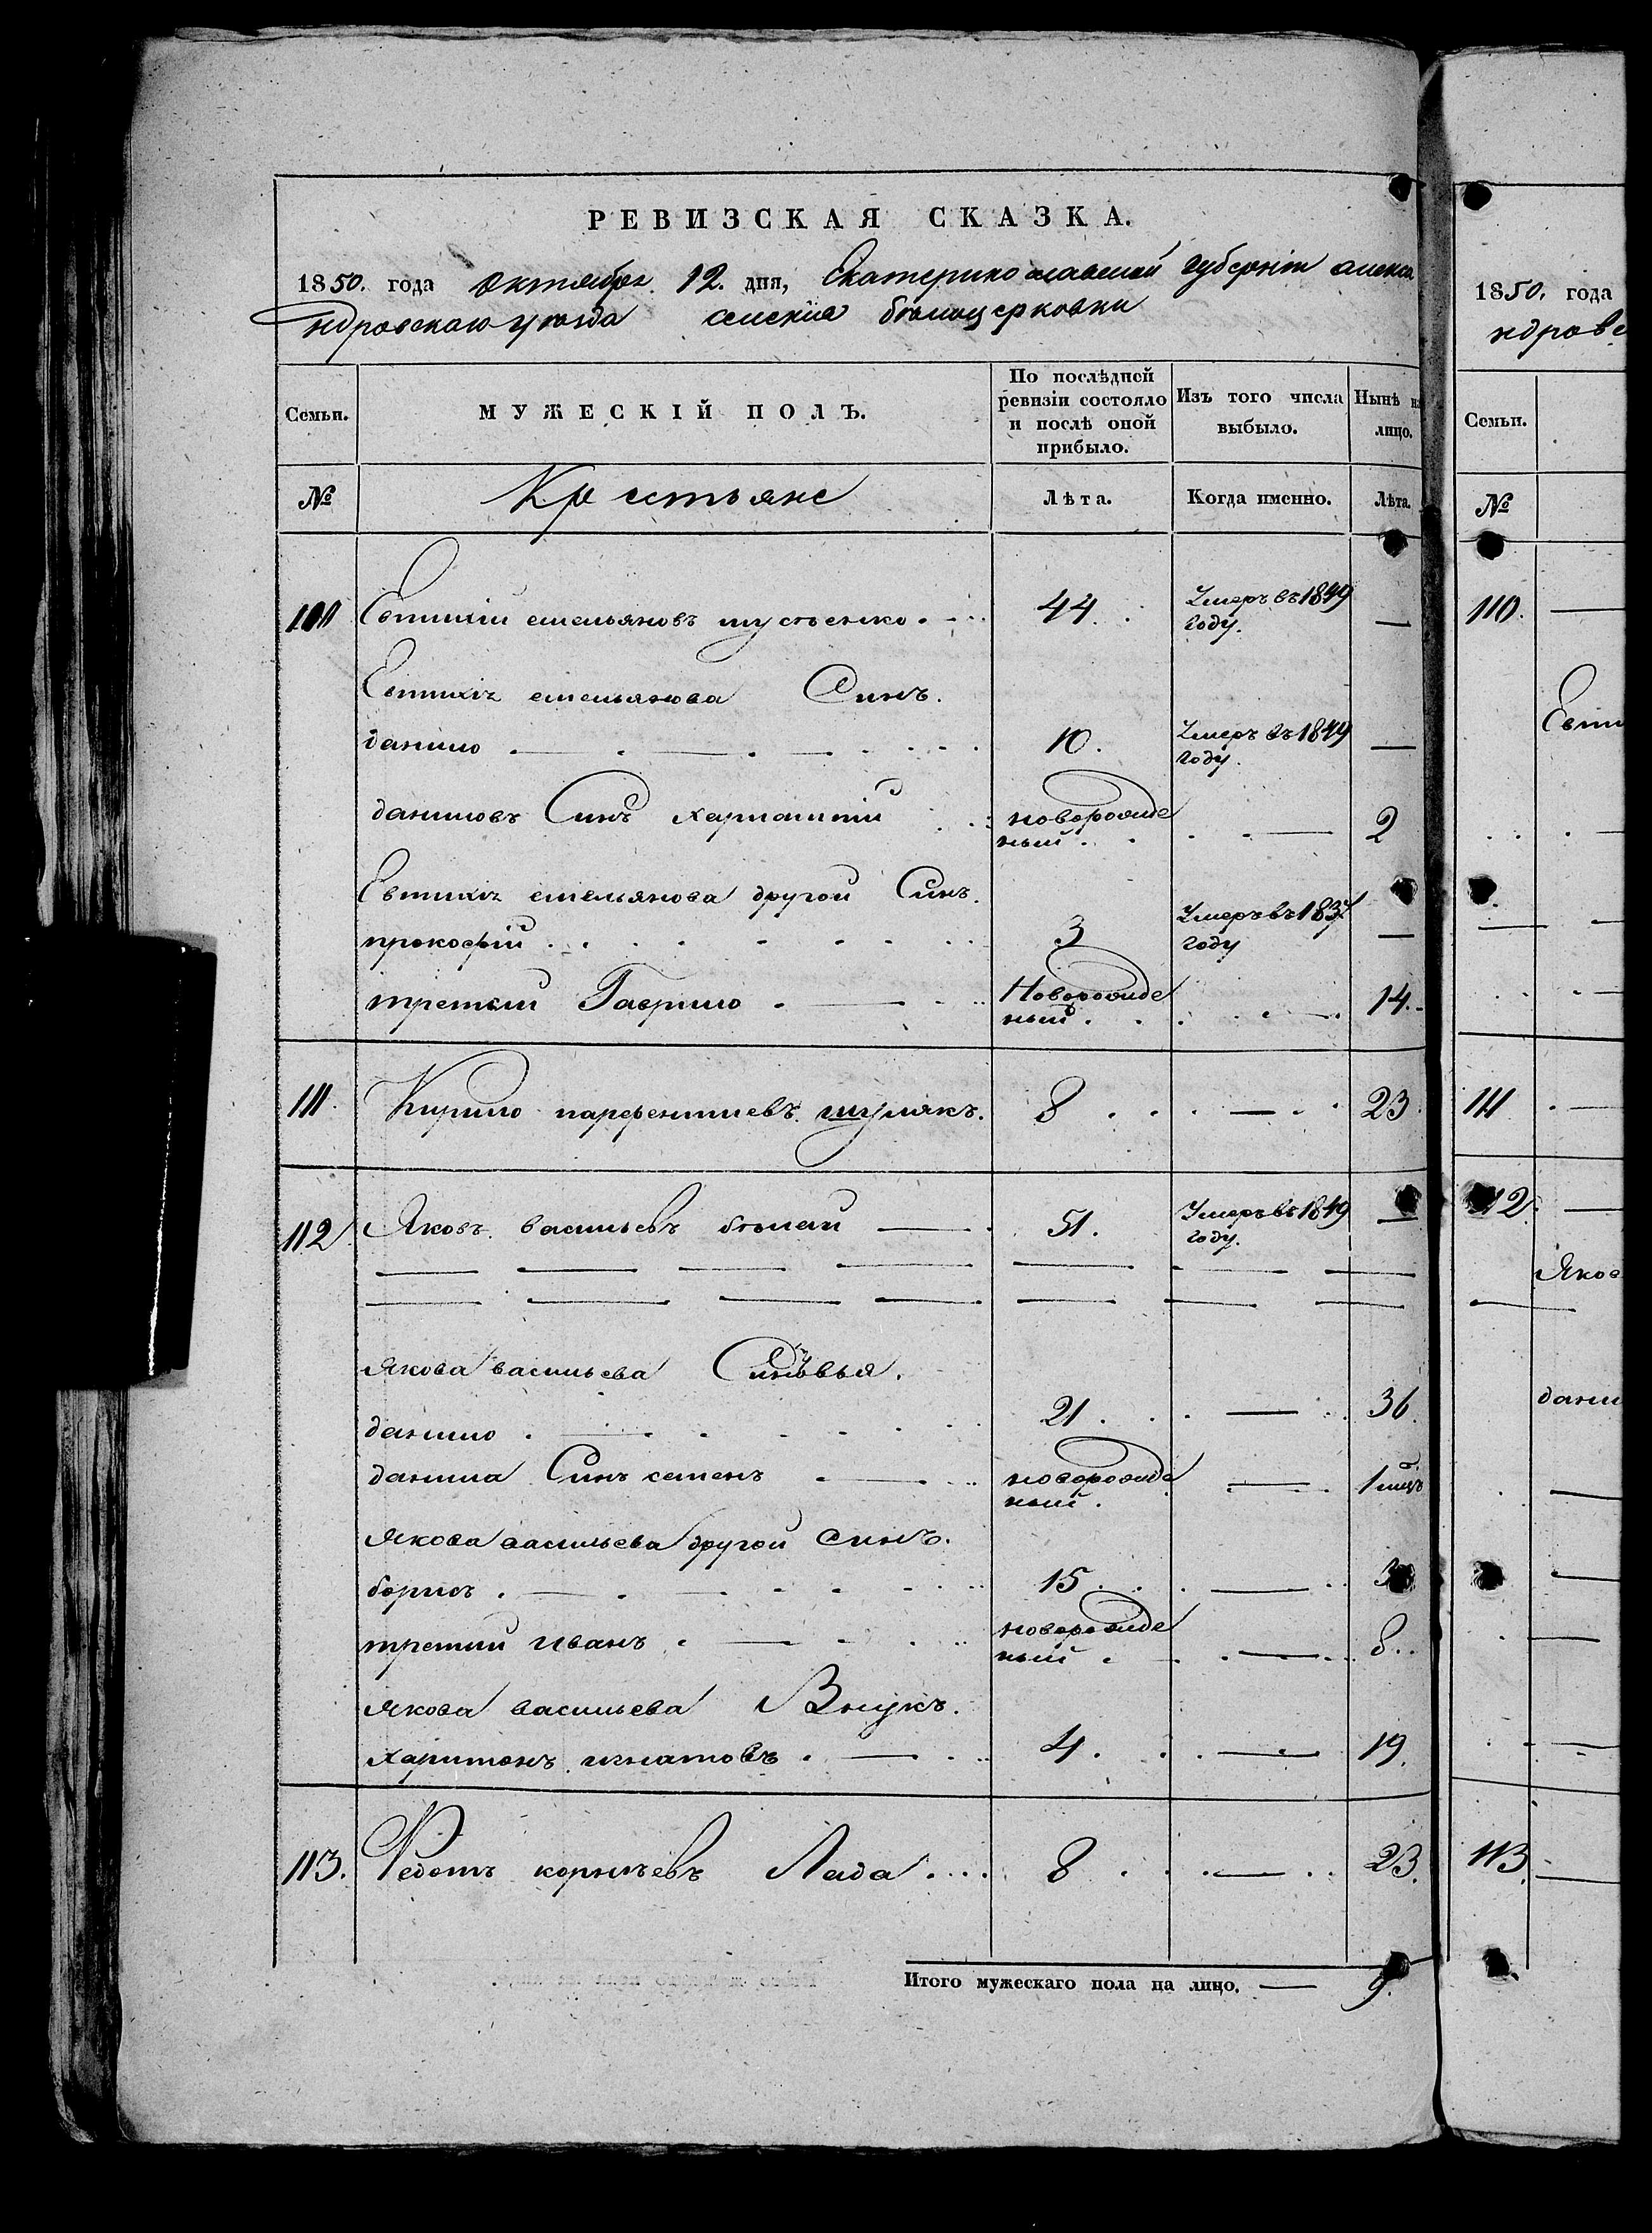 РЕВИЗСКАЯ СКАЗКА.
1850. года октября 12. дня, Екатеринославской губернiи алекса
ндровскаго уѣзда селенiя бѣлоцерковки
Семьи. МУЖЕСКІЙ ПОЛЪ. По послѣдней ревизіи состояло и послѣ оной прибыло. Изъ того числа выбыло. Нынѣ на лицо.
№ Крестьяне Лѣта. Когда именно. Лѣта.
110 Евтихій емельяновъ 44. Умеръ въ 1849 году. —
Евтихія емельянова Синъ.
данило 10. Умеръ въ 1849 году. —
даниловъ Синъ новорожденый 2
Евтихія емельянова другой Синъ.
прокофій 3 Умеръ въ 1837 году —
третий Гаврило Новорожденый 14.
111. Кирило парфентиевъ шулякъ. 8 — 23.
112 Яковъ васильевъ бѣлай 51. Умеръ въ 1849 году. —
Якова васильева Синовья.
данило 21. — 36.
данила Синъ семенъ новорожденый. — 1 мцъ
Якова васильева другой синъ.
борисъ 15 —
третий иванъ новорожденый — 8
якова васильева Внукъ.
харитонъ игнатовъ 4. — 19.
113. Федотъ корнѣевъ Лада 8 — 23.
Итого мужескаго пола на лицо. — 9.
1850. года
ндровс
Семьи.
№
110.
Евти
111
112.
Яков
дани
113.